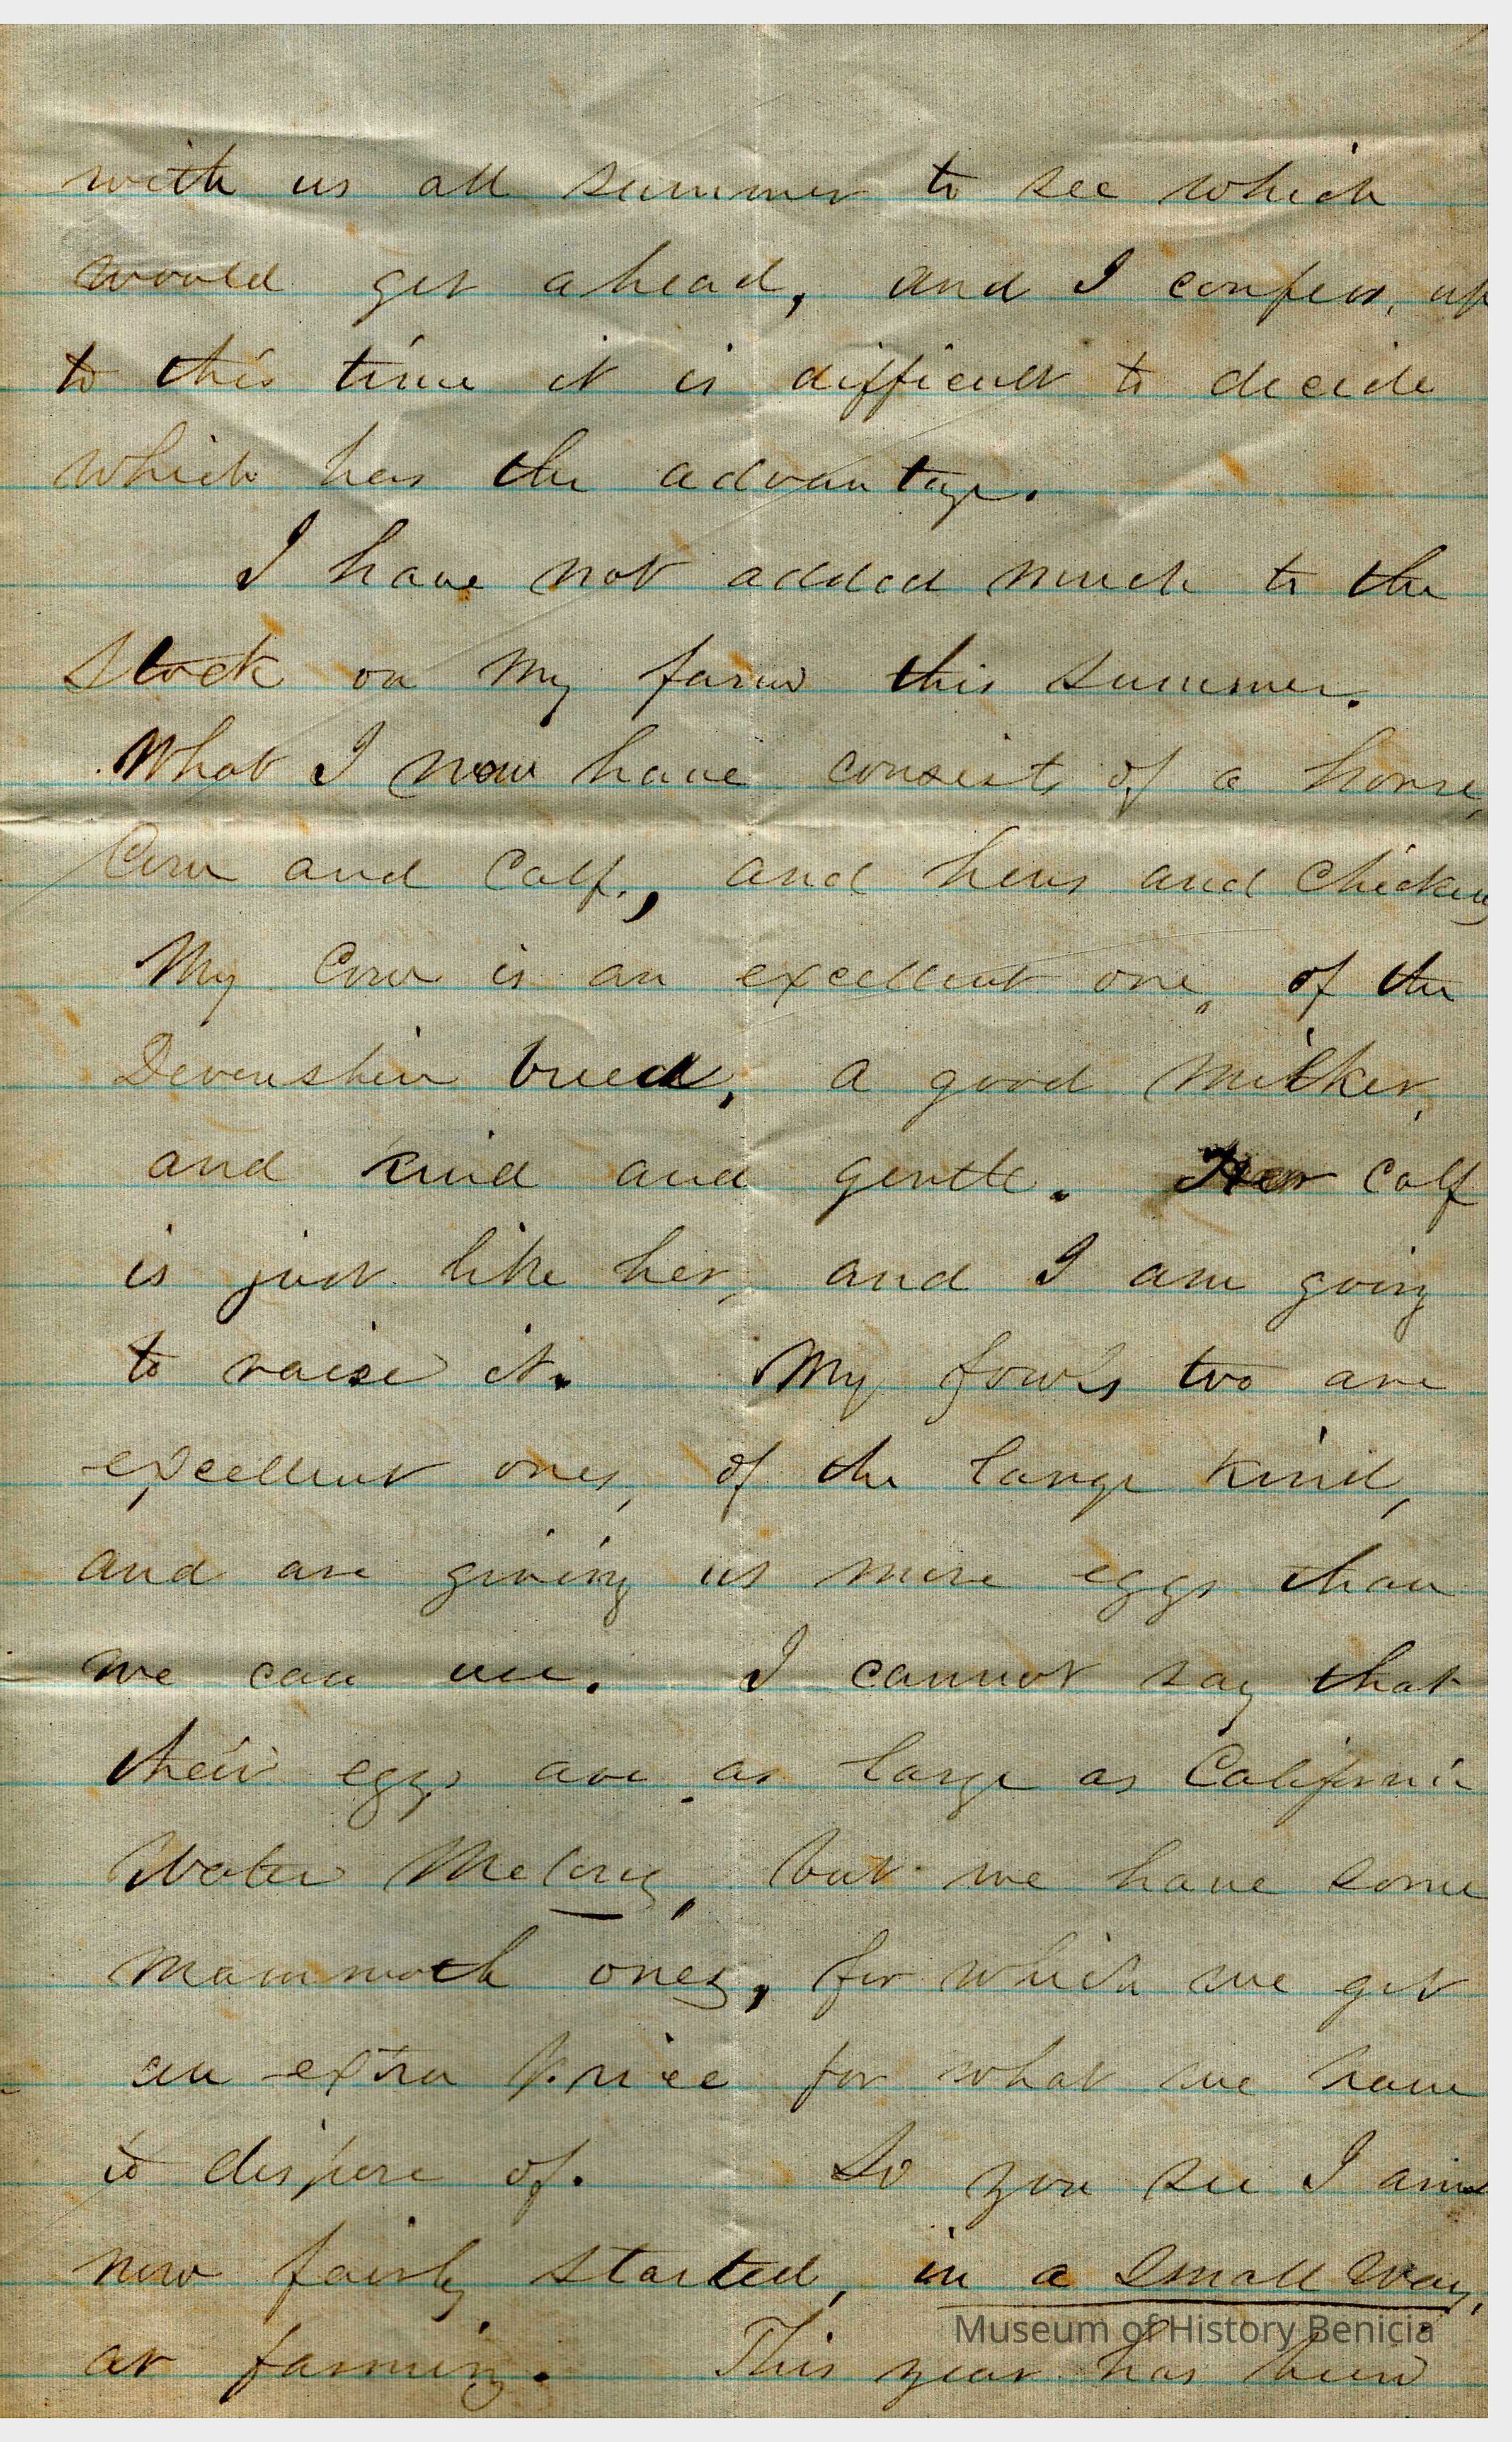 with us all summer to see which
would get ahead, and I confess, up
to this time it is difficult to decide
which has the advantage.
I have not added much to the
stock on my farm this summer.
What I now have consists of a horse,
Cow and Calf, and hens and chickens
My Cow is an excellent one, of the
Devonshire breed, a good milker,
and kind and gentle. Her calf
is just like her, and I am going
to raise it. My fowls too are
excellent ones, of the large kind,
and are giving us more eggs than
we can use. I cannot say that
their eggs are as large as California
Water Melons, but we have some
mammoth ones, for which we get
an extra price for what we have
to dispose of. So you see I am
now fairly started, in a small way,
at farming. This year has been
Museum of History Benicia